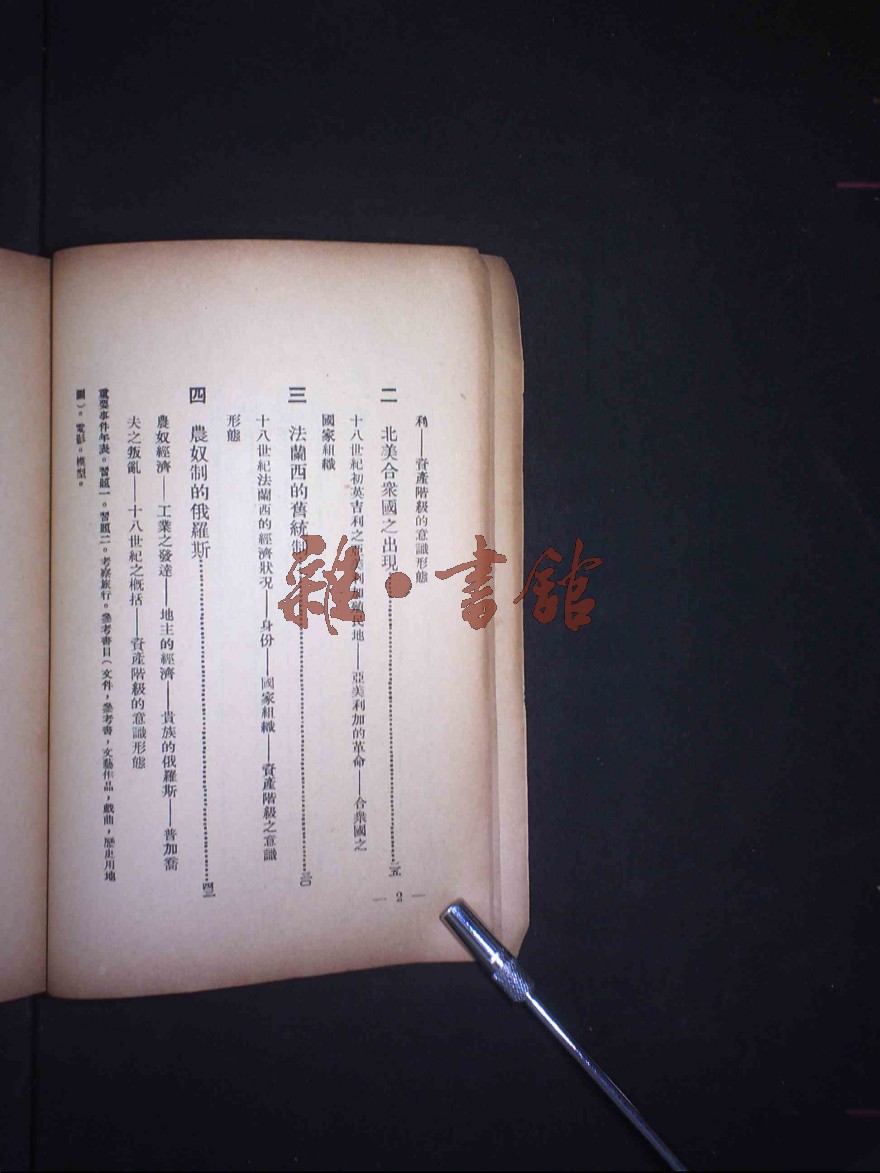 利——資產階級的意識形態
二 北美合衆國之出現……二五
十八世紀初英吉利之亞美利加殖民地——亞美利加的革命——合衆國之
國家組織
三 法蘭西的舊統制……三〇
十八世紀法蘭西的經濟狀况——身份——國家組織——資產階級之意識
形態
四 農奴制的俄羅斯……四二
農奴經濟——工業之發達——地主的經濟——貴族的俄羅斯——普加喬
夫之叛亂——十八世紀之概括——資產階級的意識形態
重要事件年表。習題一。習題二。考察旅行。參考書目(文件,參考書,文藝作品,戲曲,歷史用地
圖)。電影。模型。
— 2 —
雜·書館